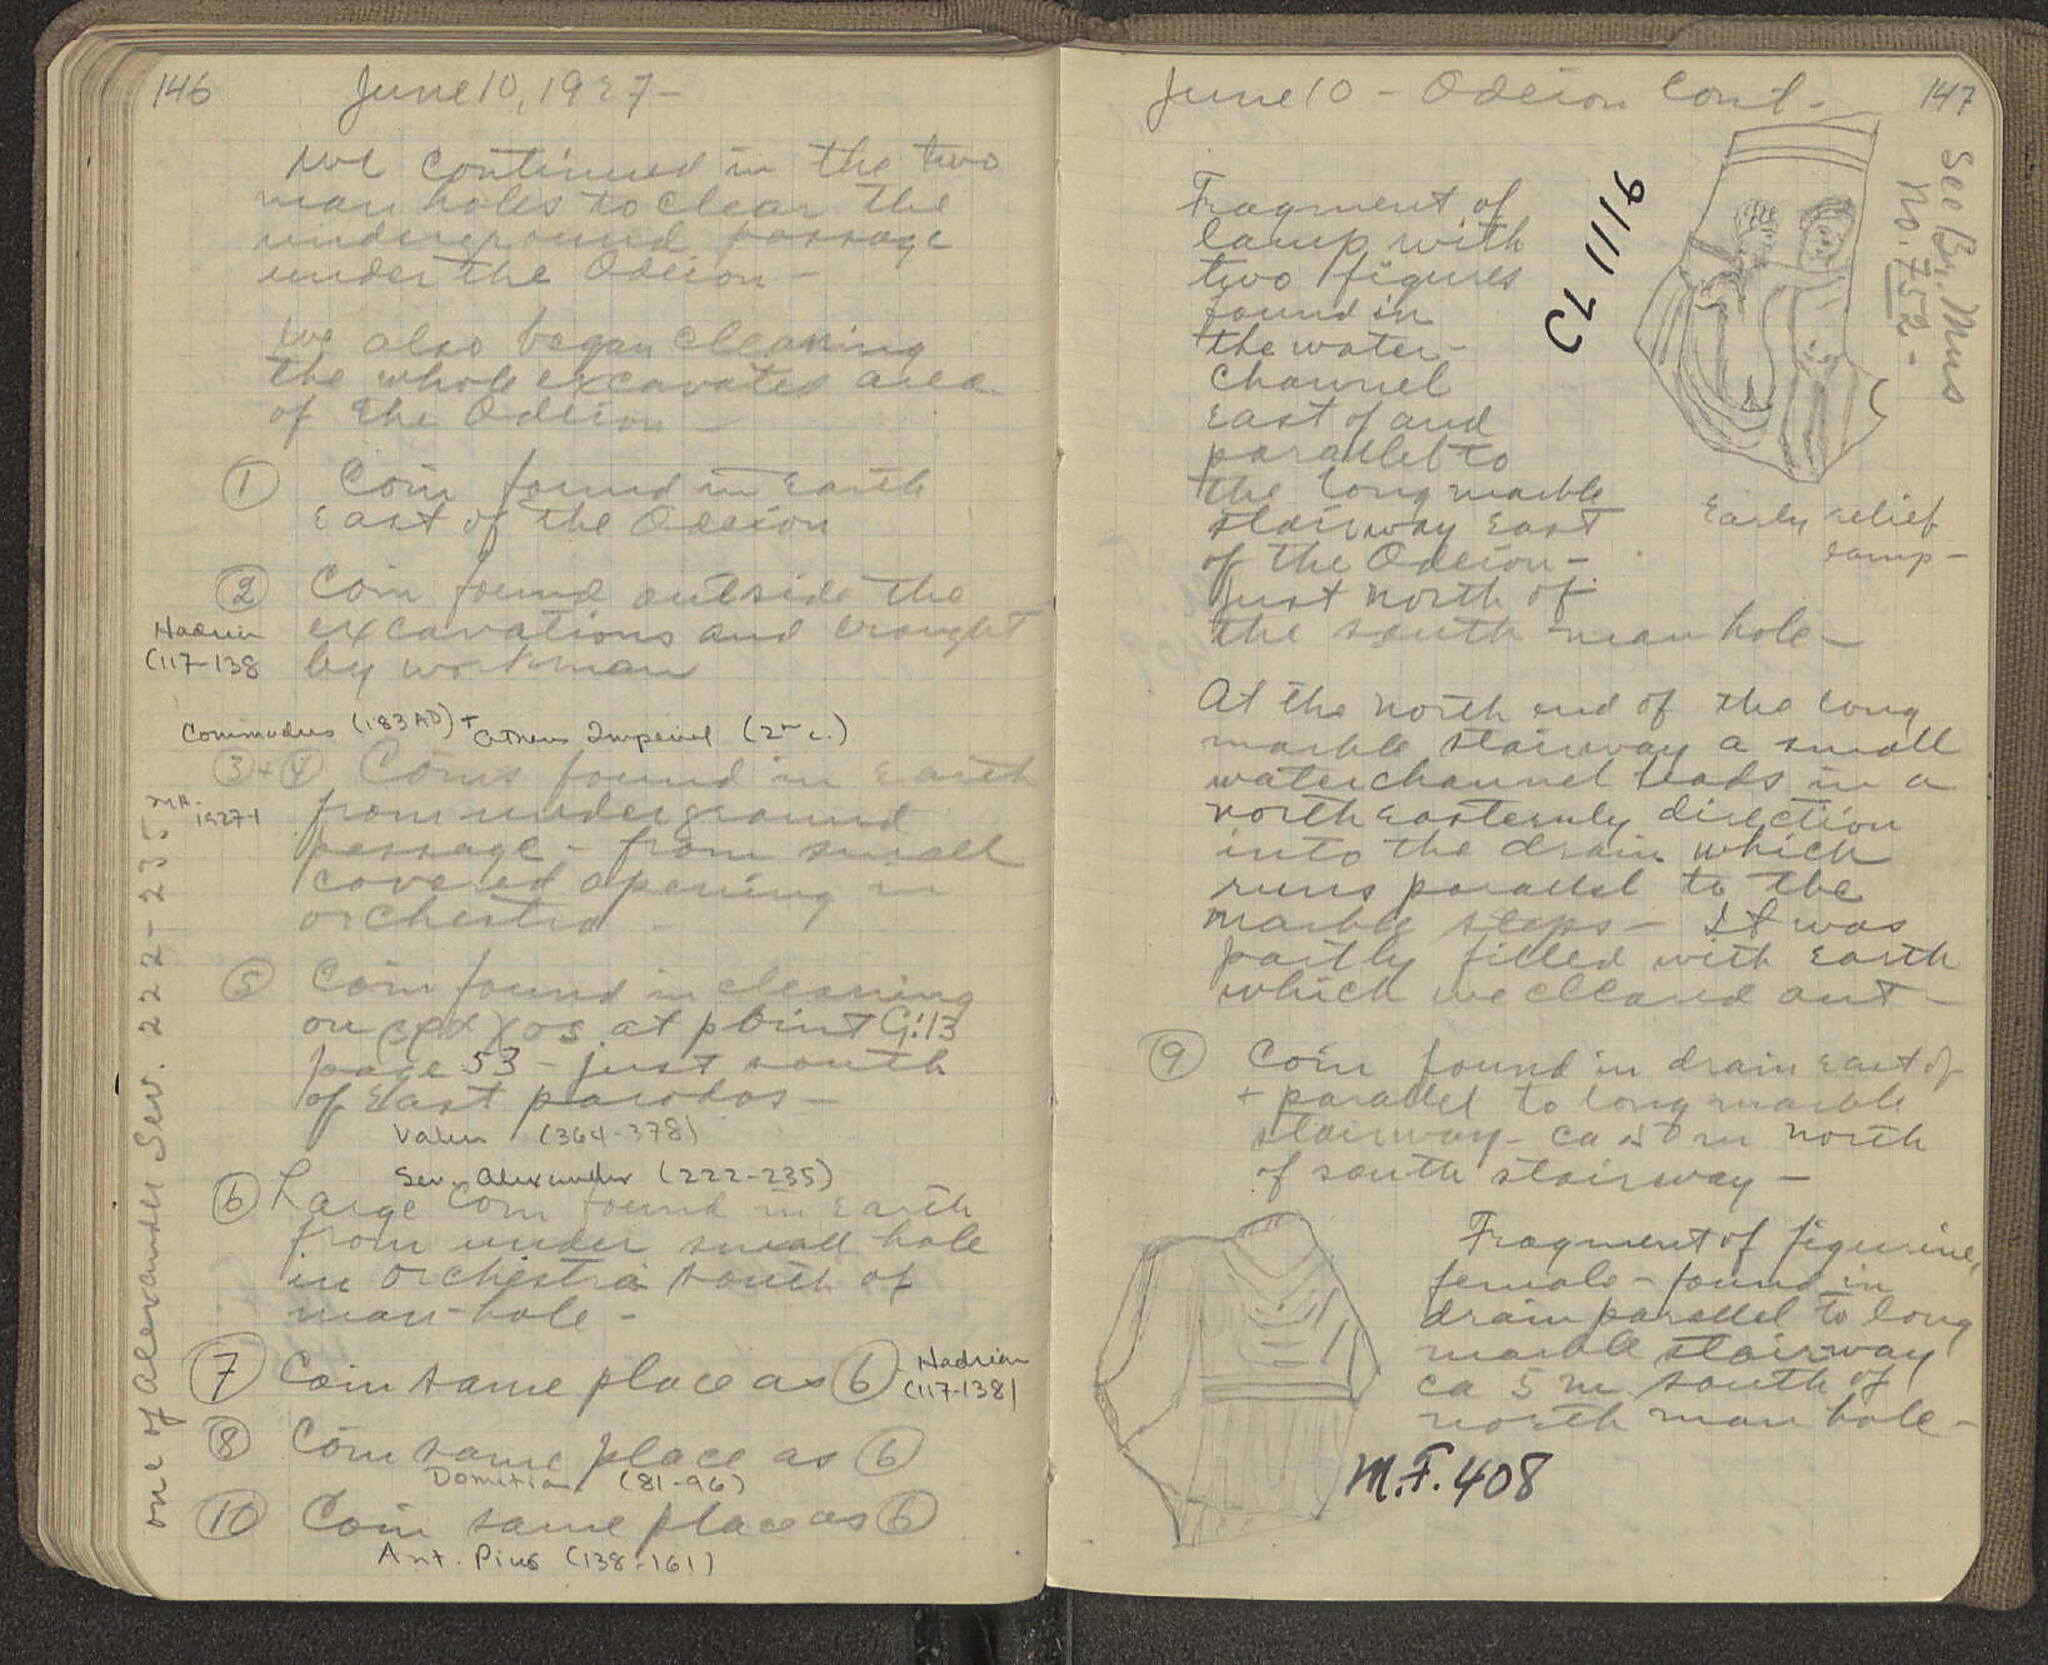 146
June 10, 1927 -
We continued in the two
man holes to clear the
underground passage
under the Odeion -
We also began cleaning
the whole excavated area
of the Odeion -
① Coin found in Earth
East of the Odeion
② Coin found outside the
excavations and brought
by workman
Hadrian
(117-138
Commodus (183 AD) + Athens Imperial (2nd c.)
③ + ④ Coins found in Earth
from underground
passage - from small
covered opening in
orchestra -
1927-1
⑤ Coin found in cleaning
on βράχος at point G:13
page 53 - just south
of East parodos -
Valens (364-378)
Sev. Alexander (222-235)
⑥ Large Coin found in Earth
from under small hole
in orchestra south of
man-hole -
⑦ Coin same place as ⑥ - Hadrian
(117-138)
⑧ Coin same place as ⑥
Domitian (81-96)
⑩ Coin same place as ⑥
Ant. Pius (138-161)
one of Alexander Sev. 222-235
June 10 - Odeion Cont -
147
Fragment of
lamp with
two figures
found in
the water-
channel
East of and
parallel to
the long marble
stairway East
of the Odeion -
Just North of
the south man hole -
CL 1116
See Br. Mus
No. 752 -
Early relief
lamp -
At the North end of the long
marble stairway a small
waterchannel leads in a
north easternly direction
into the drain which
runs parallel to the
marble steps - It was
partly filled with Earth
which we cleared out -
⑨ Coin found in drain East of
+ parallel to long marble
stairway - ca 50 m north
of south stairway -
Fragment of figurine,
female - found in
drain parallel to long
marble stairway
ca 5 m south of
north man hole -
M.F. 408